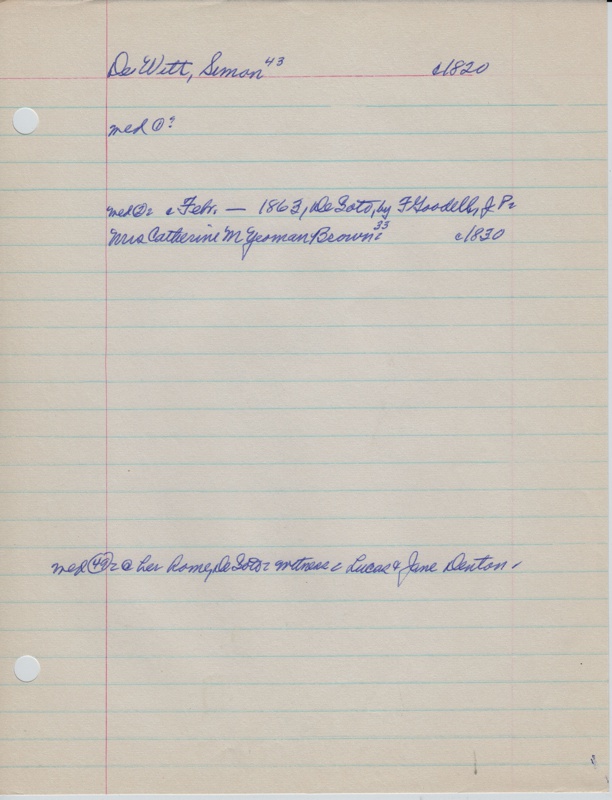 De Witt, Simon 43 c1820
med ① ?
med ②: c Febr. — 1863, De Soto, by F Goodell, J P.
Mrs Catherine M Yeoman Brown: 33 c1830
med @ her home, De Soto: witness: Lucas & Jane Denton.